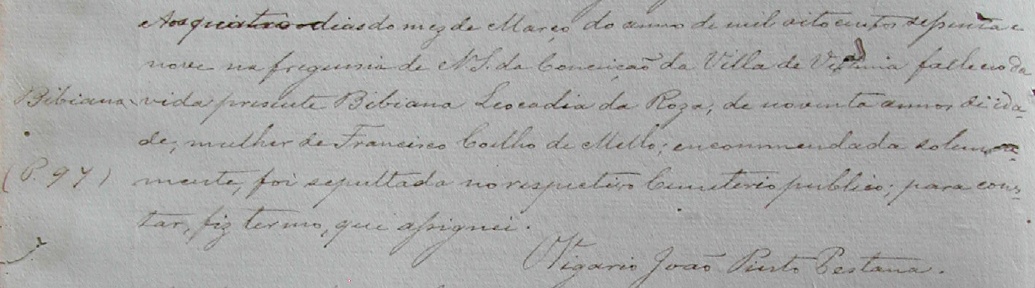 Aos quatro dias do mez de Março do anno de mil oitocentos sepenta e
nove na freguesia de N. S. da Conceição da Villa de falleceo da
Bibiana vida presente Bibiana Leocadia da Roza, de noventa annos de ida-
de, mulher de Francisco Coelho de Mello; encommendada solem
(P. 97) mente, foi sepultada no respectivo Cemiterio publico; para cons-
tar, fiz termo, que assignei.
Vigario João Pinto Pestana.